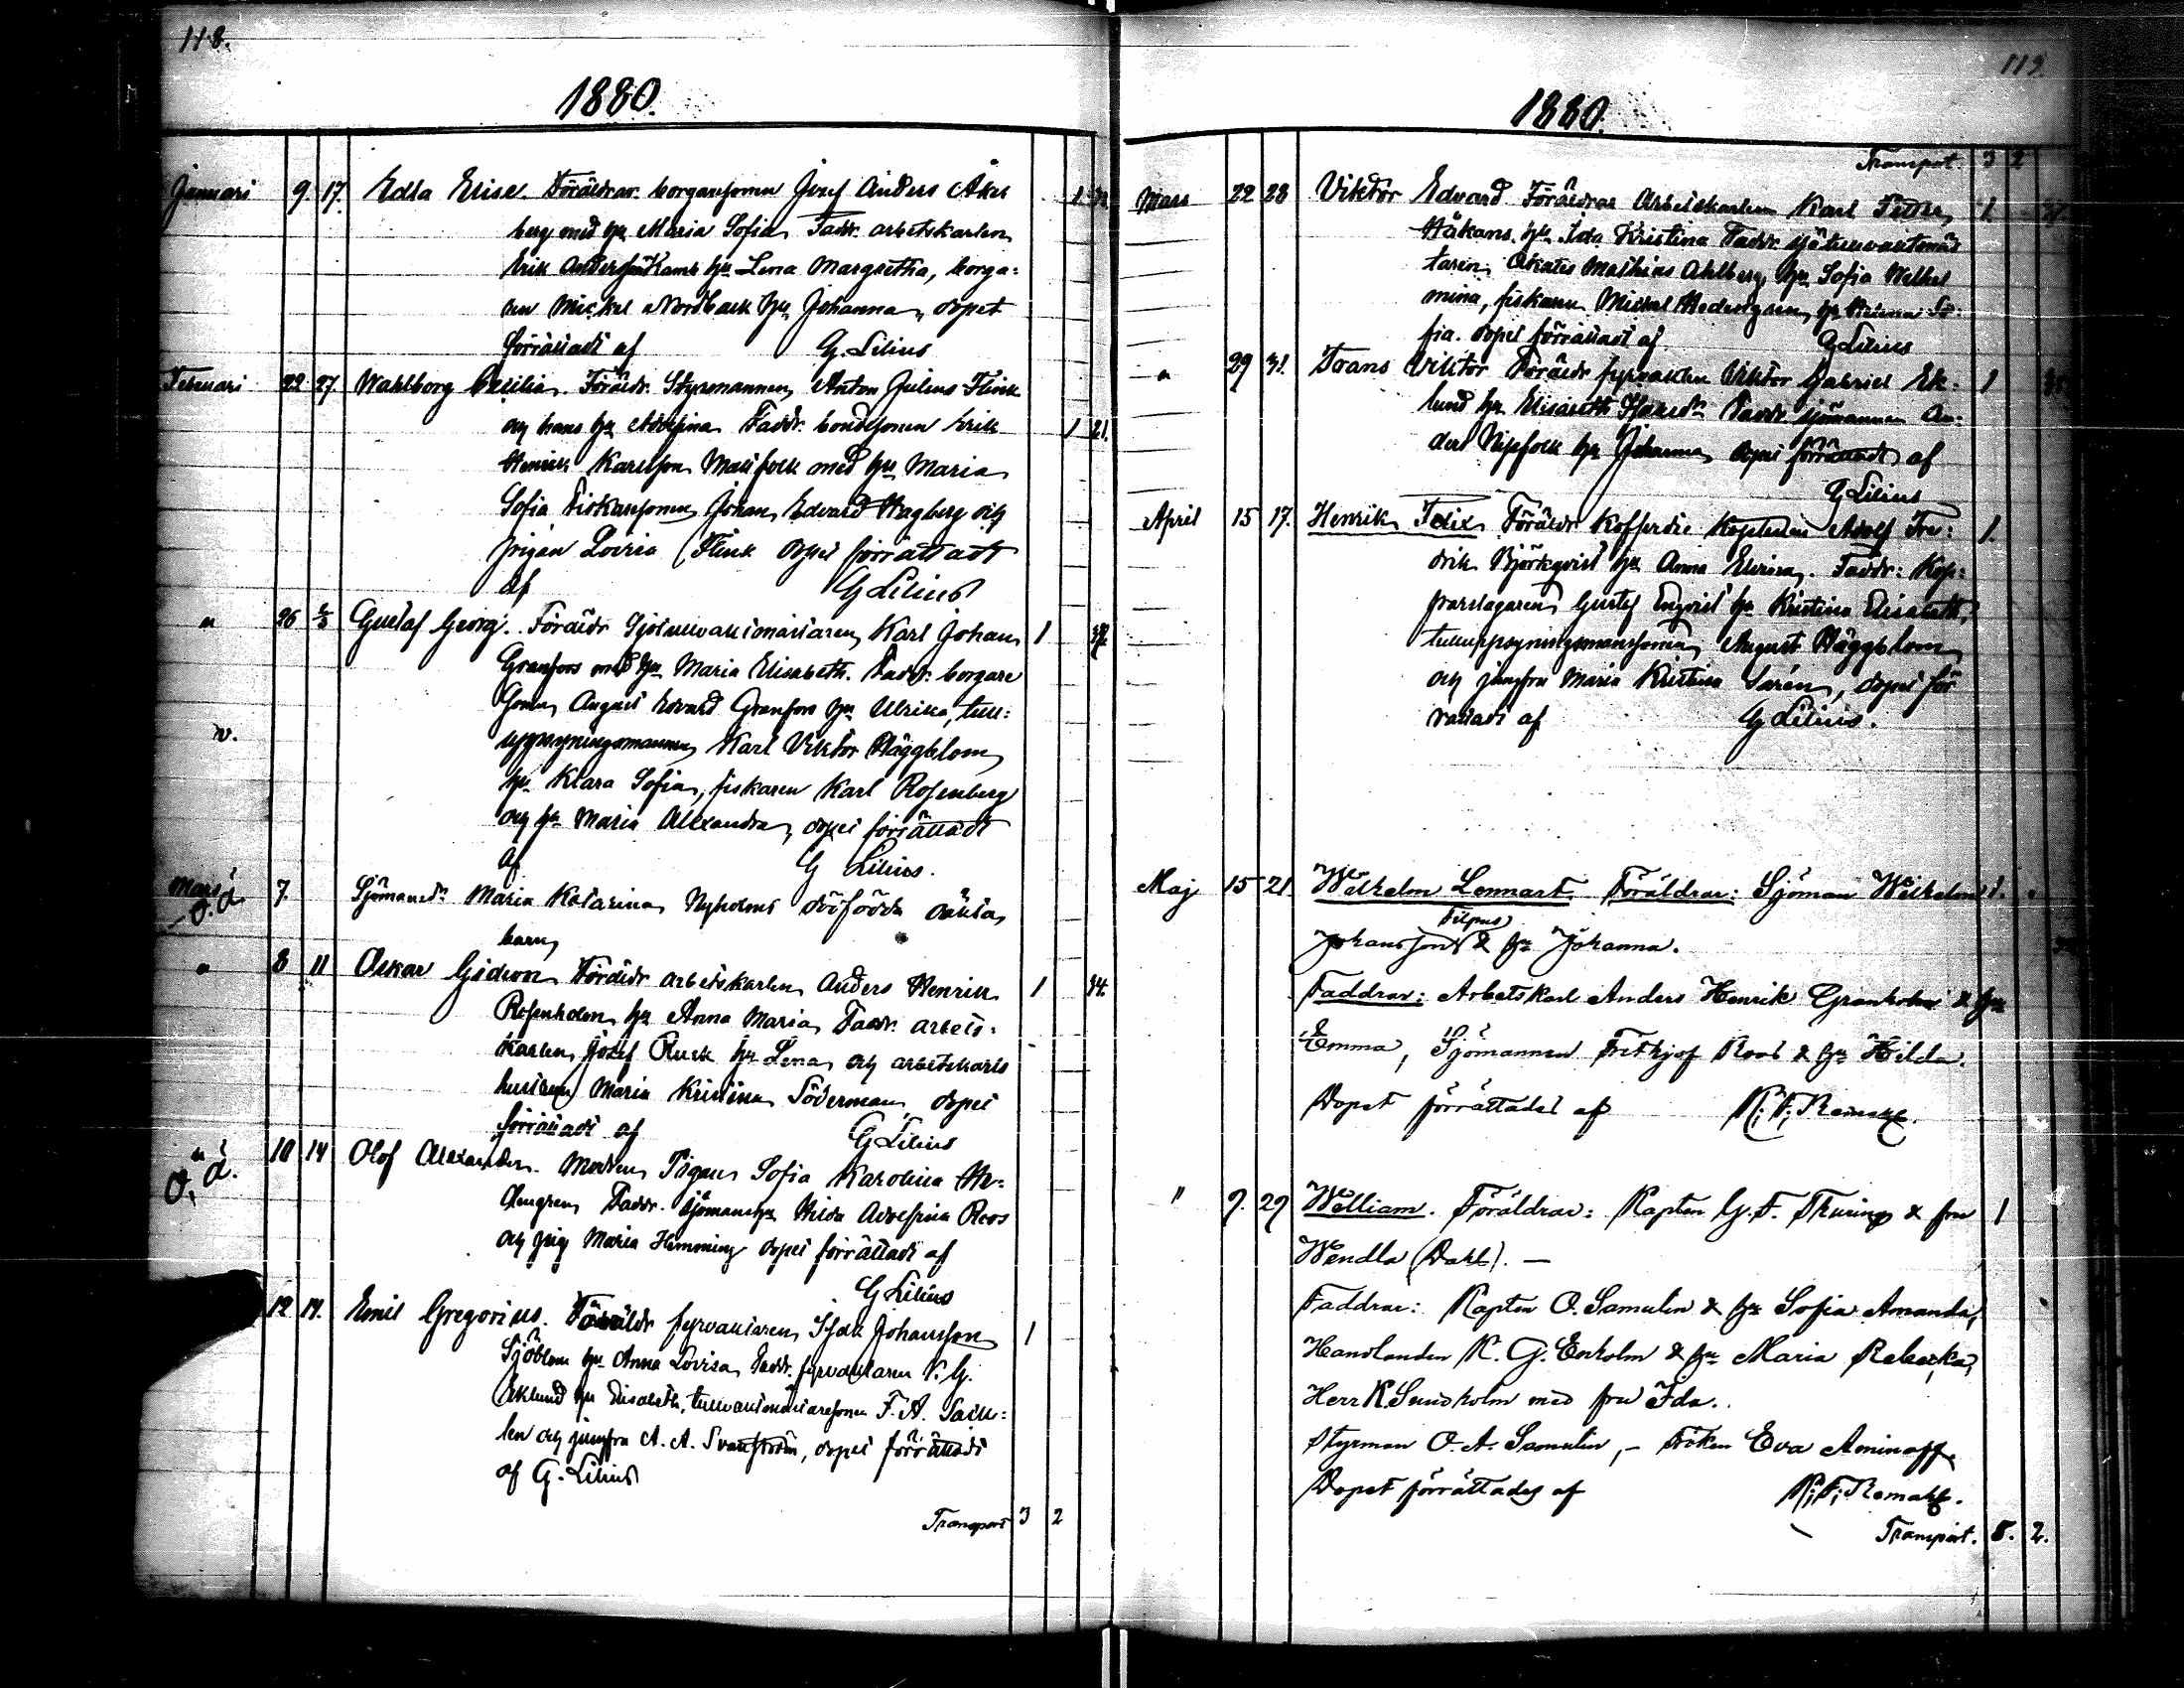 118.
1880.
Januari 9. 17. Edla Elise. Föräldrar borgaresonen Josef Anders Åker
berg med hu Maria Sofia, Faddr. arbetskarlen
Erik Anderson Kamb hu Lena Margretha, borga:
ren Mickel Nordback hu Johanna, dopet
förrättadt af G. Lilius
Februari 22 27 Wahlborg Cecilia. Föräldr. Styrmannen Anton Julius Flink
och hans hu Adolfina Faddr. bondesonen Erik 1 21.
Henrik Karlsson med hu Maria
Sofia Fiskaresonen Johan Edvard Hagberg och
pigan Lovisa Flink dopet förrättadt
af G Lilius
" 26 2/3 Gustaf Georg. Föräldr Karl Johan 1
Granfors med hu Maria Elisabeth. Faddr. borgare
sonen August Edvard Granfors hu Ulrika, tull:
uppsyningsmannen Karl Viktor Häggblom
hu Klara Sofia, fiskaren Karl Rosenberg
och hu Maria Alexandra, dopet förrättadt
af G Lilius.
Mars 7. Sjömansd:r Maria Katarina Nyholms dödfödda oäkta
o.ä.
barn
" 8 11 Oskar Gideon Föräldr arbetskarlen Anders Henrik 1 34.
Rosenholm hu Anna Maria Faddr. arbets:
karlen Josef Rusk hu Lena och arbetskarls
hustrun Maria Kristina Söderman, dopet
förrättadt af G Lilius
" 10 14 Olof Alexander. Modren Pigan Sofia Karolina He:
o. ä.
Faddr. sjömanshu Hilda Adolfina Roos
och pig Maria Hemming dopet förrättadt af
G Lilius
12 14. Emil Gregorius. Föräldr fyrvaktaren Isak Johansson 1
Sjöblom hu Anna Lovisa Faddr. fyrvaktaren V. G.
Eklund hu Elisabeth, F. A.
len och jungfru A. A. Svanström, dopet förrättadt
af G. Lilius
Transport 3 2
119.
1880.
Transport. 3 2
Mars 22 28 Viktor Edvard Föräldrar Arbetskarlen Karl Petter 1
Håkans. hu Ida Kristina Faddr.
taren Mathias Ahlberg hu Sofia Wilhel
mina, fiskaren Mickel Hedengren, hu Helena So:
fia. dopet förrättadt af G Lilius
" 29 31. Frans Viktor Föräldr fyrvaktar Viktor Gabriel Ek: 1
lund hu Elisabeth Isaksdr Faddr. sjömannen An:
ders hu Johanna, dopet förrättadt af
G Lilius
April 15 17. Henrik Felix Föräldr Kofferdie Kaptenen Adolf Fre: 1.
drik Björkqvist hu Anna Elvira. Faddr: Kop:
parslagaren Gustaf Enqvist hu Kristina Elisabeth,
tulluppsyningsmansonen August Häggblom
och jungfru Maria Kristina Sarén, dopet för
rättadt af G Lilius.
Maj 15 21. Wilhelm Lennart. Föräldrar: Sjöman Wilhelm 1.
Filpus
Johansson & hu Johanna.
Faddrar: Arbetskarl Anders Henrik Granholm & hu
Emma, Sjömannen Frithjof Roos & hu Hilda.
Dopet förrättades af
" 9. 29 William. Föräldrar: Kapten G. F. Thuring & fru 1
Wendla (Dahl). —
Faddrar: Kapten O. Samulin & hu Sofia Amanda,
Handlanden K. G. Enholm & hu Maria Rebecka,
Herr K. Sundholm med fru Ida.
Styrman O. A. Samulin, - Fröken Eva Aminoff.
Dopet förrättades af
Transport. 8. 2.